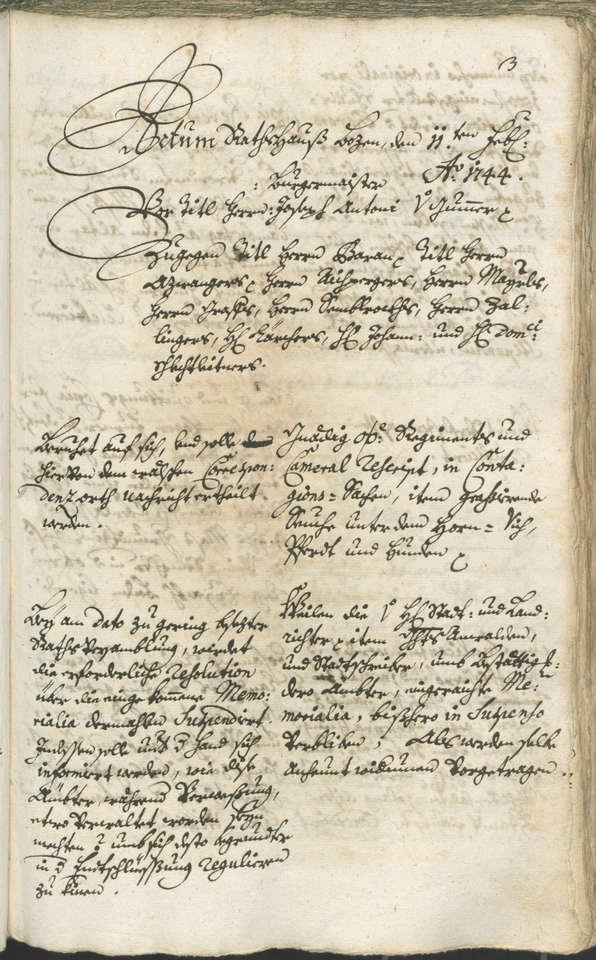 3
Actum Rathshauß Bozen, den 11.ten Feb:
Ao. 1744.
: Burgermaister
Vor Titl Herrn: Joseph Antoni V Gummer
Zugegen Titl Herrn Titl Herrn
Azwangers, Herrn Kuchpergers, Herrn Mayrls,
Herrn Herrn Herrn Zal-
lingers, H: Kärchers, H: Johann- und H: Dom:ci
Beruhet auf sich, und solle
hiervon dem Correspon-
denz orth nachricht ertheilt
werden.
Gnädig Regiments und
Cameral Rescript, in Conta-
gions-Sachen, item grassirende
Seuche unter dem Horn-Vich,
Pferdt und Hunden
Bey am dato zu gering besezter
Raths Versamblung, wirdet
die erforderliche Resolution
über die eingekommene Memo-
rialia dermahlen Suspendirt.
Indessen solle unter Hand sich
informiert werden, wie dise
Ämbter, während
verwaltet worden seyn
mechten? umb sich desto
in Endtschlüssung reguliren
zu könen.
Weilen die H: Statt- und Land-
richter item Anwalden,
und Stadtschreiber, umb
dero Ämbter, eingeraichte Me-
morialia, bishero in Suspenso
verbliben; Als werden selbe
anheunt widerumen vorgetragen.